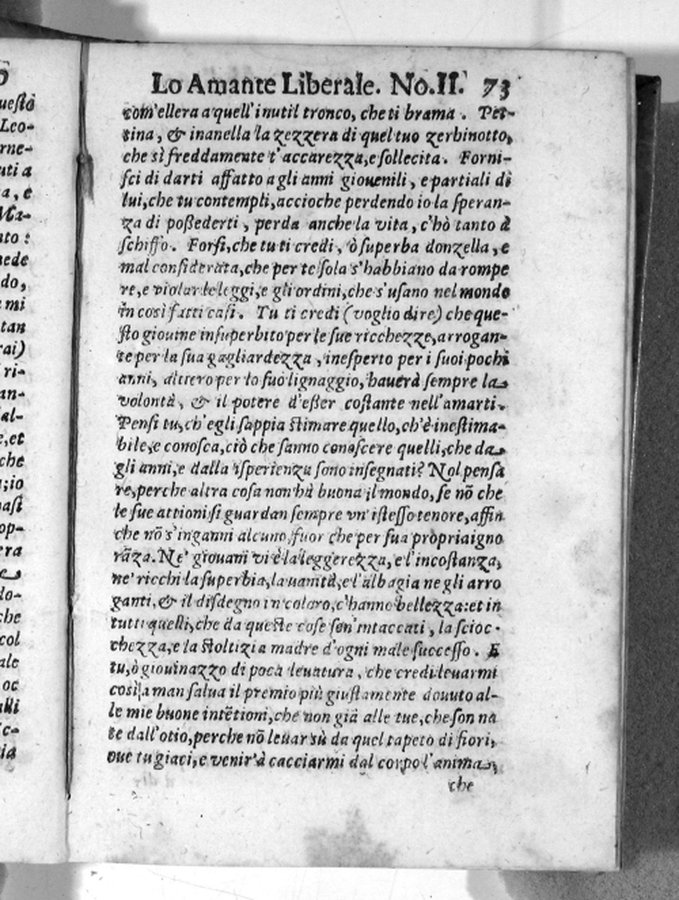 Lo Amante Liberale. No.II. 73
com'ellera a quell'inutil tronco, che ti brama. Pet-
tina, & inanella la zezzera di quel tuo zerbinotto,
che sì freddamente t'accarezza, e sollecita. Forni-
sci di darti affatto agli anni giouenili, e partiali di
lui, che tu contempli, accioche perdendo io la speran-
za di poßederti, perda anche la vita, c'hò tanto à
schiffo. Forsi, che tu ti credi, ò superba donzella, e
mal considerata, che per te sola s'habbiano da rompe
re, e violar le leggi, e gli ordini, che s'usano nel mondo
in così fatti casi. Tu ti credi (voglio dire) che que-
sto giouine insuperbito per le sue ricchezze, arrogan-
te per la sua gagliardezza, inesperto per i suoi pochi
anni, altiero per lo suo lignaggio, hauerà sempre la
volontà, & il potere d'eßer costante nell'amarti.
Pensi tu, ch'egli sappia stimare quello, ch'è inestima-
bile, e conosca, ciò che sanno conoscere quelli, che da
gli anni, e dalla isperienza sono insegnati? Nol pensa
re, perche altra cosa non hà buona il mondo, se nõ che
le sue attioni si guardan sempre vn'istesso tenore, affin
che nõ s'inganni alcuno, fuor che per sua propria igno
rãza. Ne' giouani vi è la leggerezza, e l'incostanza,
ne' ricchi la superbia, la uanità, e l'albagia ne gli arro
ganti, & il disdegno in coloro, c'hanno bellezza: et in
tutti quelli, che da queste cose son'intaccati, la scioc-
chezza, e la stoltizia madre d'ogni male successo. E
tu, ò giouinazzo di poca leuatura, che credi leuarmi
così a man salua il premio più giustamente douuto al-
le mie buone intẽtioni, che non già alle tue, che son na
te dall'otio, perche nõ leuar sù da quel tapeto di fiori,
oue tu giaci, e venir'à cacciarmi dal corpo l'anima,
che
uesto
Leo-
rne-
uti a
ta, e
Ma-
nto:
nede
do,
mi
tan
rai)
ri-
an-
al-
e, et
che
; io
asi
op-
era
do-
che
col
ale
oc